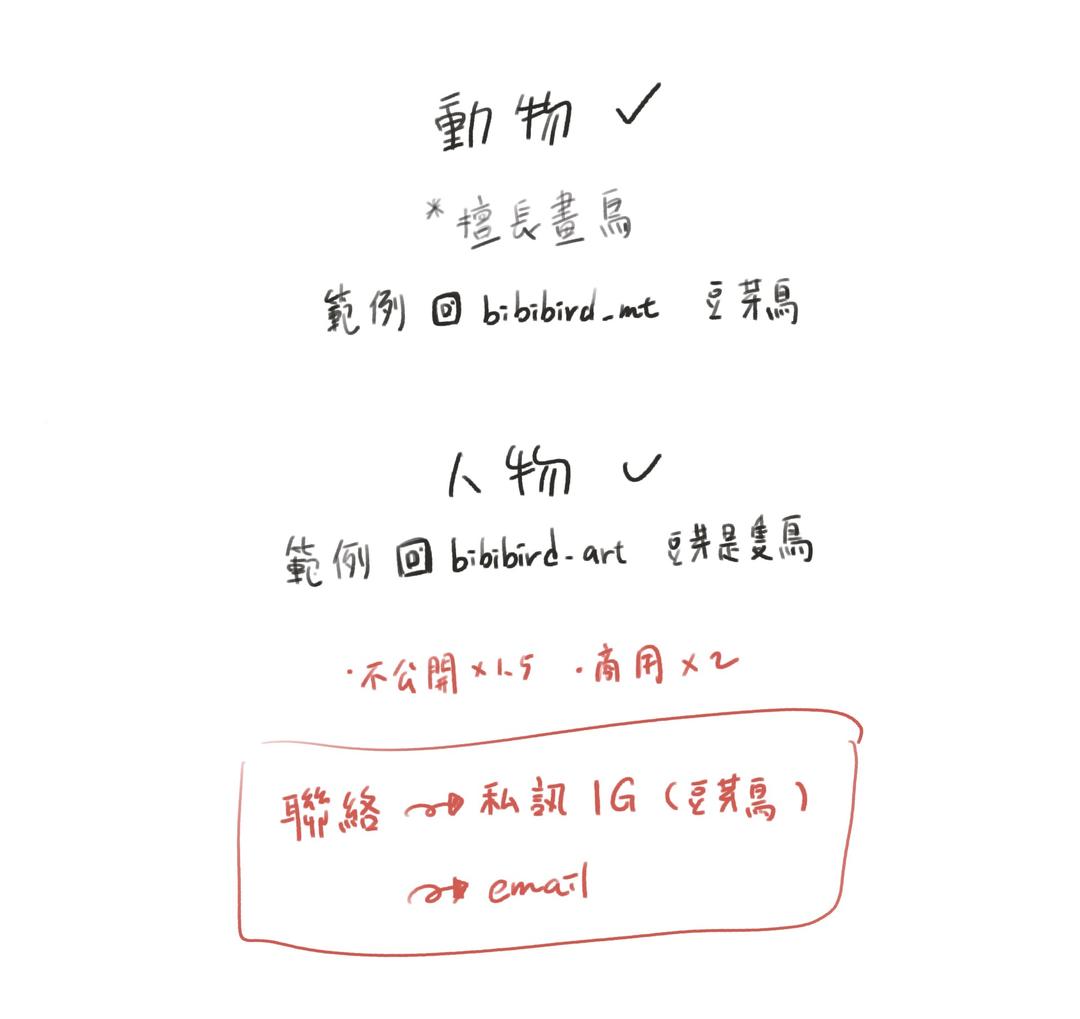 動物 ✓
*擅長畫鳥
範例 bibibird_mt 豆芽鳥
人物 ✓
範例 bibibird-art 豆芽是隻鳥
·不公開×1.5 ·商用×2
聯絡 → 私訊IG(豆芽鳥)
→ email